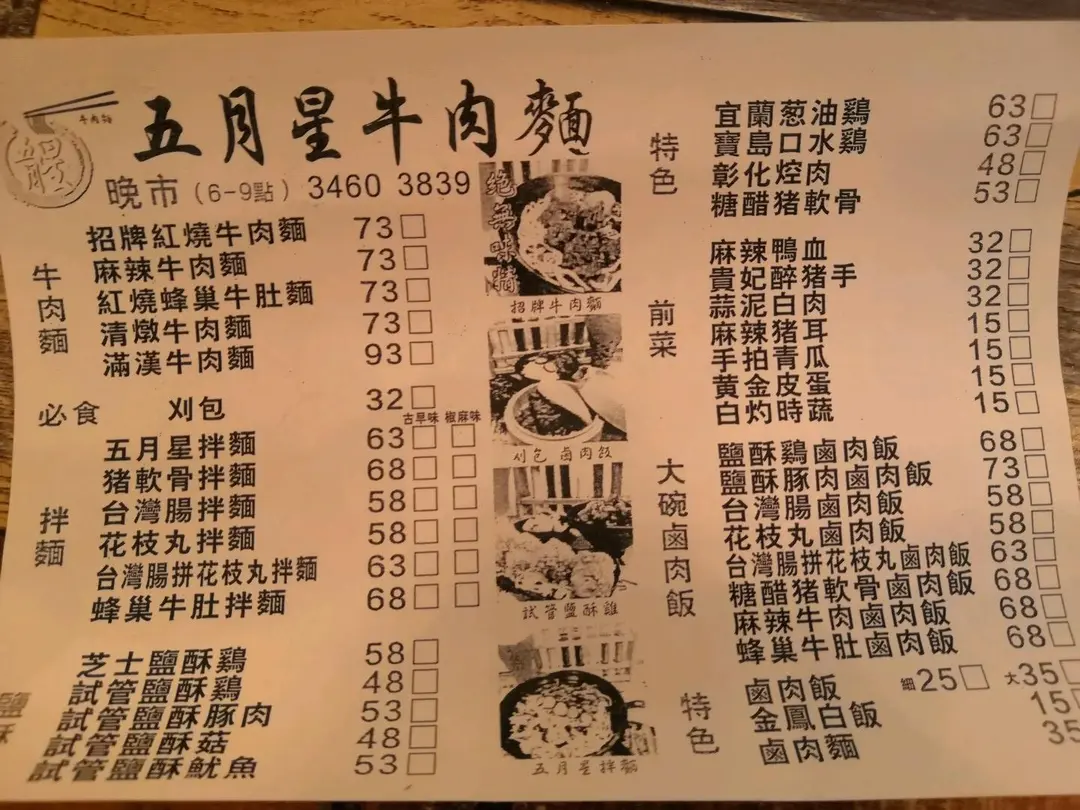 五月星牛肉麵
牛肉麵
五月星
晚市（6-9點）3460 3839
牛肉麵
招牌紅燒牛肉麵 73
麻辣牛肉麵 73
紅燒蜂巢牛肚麵 73
清燉牛肉麵 73
滿漢牛肉麵 93
必食 刈包 32
古早味 椒麻味
拌麵
五月星拌麵 63
猪軟骨拌麵 68
台灣腸拌麵 58
花枝丸拌麵 58
台灣腸拼花枝丸拌麵 63
蜂巢牛肚拌麵 68
鹽酥
芝士鹽酥鷄 58
試管鹽酥鷄 48
試管鹽酥豚肉 53
試管鹽酥菇 48
試管鹽酥魷魚 53
絶無味精
招牌牛肉麵
刈包 鹵肉飯
試管鹽酥雞
五月星拌麵
特色
宜蘭葱油鷄 63
寶島口水鷄 63
彰化焢肉 48
糖醋猪軟骨 53
前菜
麻辣鴨血 32
貴妃醉猪手 32
蒜泥白肉 32
麻辣猪耳 15
手拍青瓜 15
黄金皮蛋 15
白灼時蔬 15
大碗鹵肉飯
鹽酥鷄鹵肉飯 68
鹽酥豚肉鹵肉飯 73
台灣腸鹵肉飯 58
花枝丸鹵肉飯 58
台灣腸拼花枝丸鹵肉飯 63
糖醋猪軟骨鹵肉飯 68
麻辣牛肉鹵肉飯 68
蜂巢牛肚鹵肉飯 68
特色
鹵肉飯 細25 大35
金鳳白飯 15
鹵肉麵 35